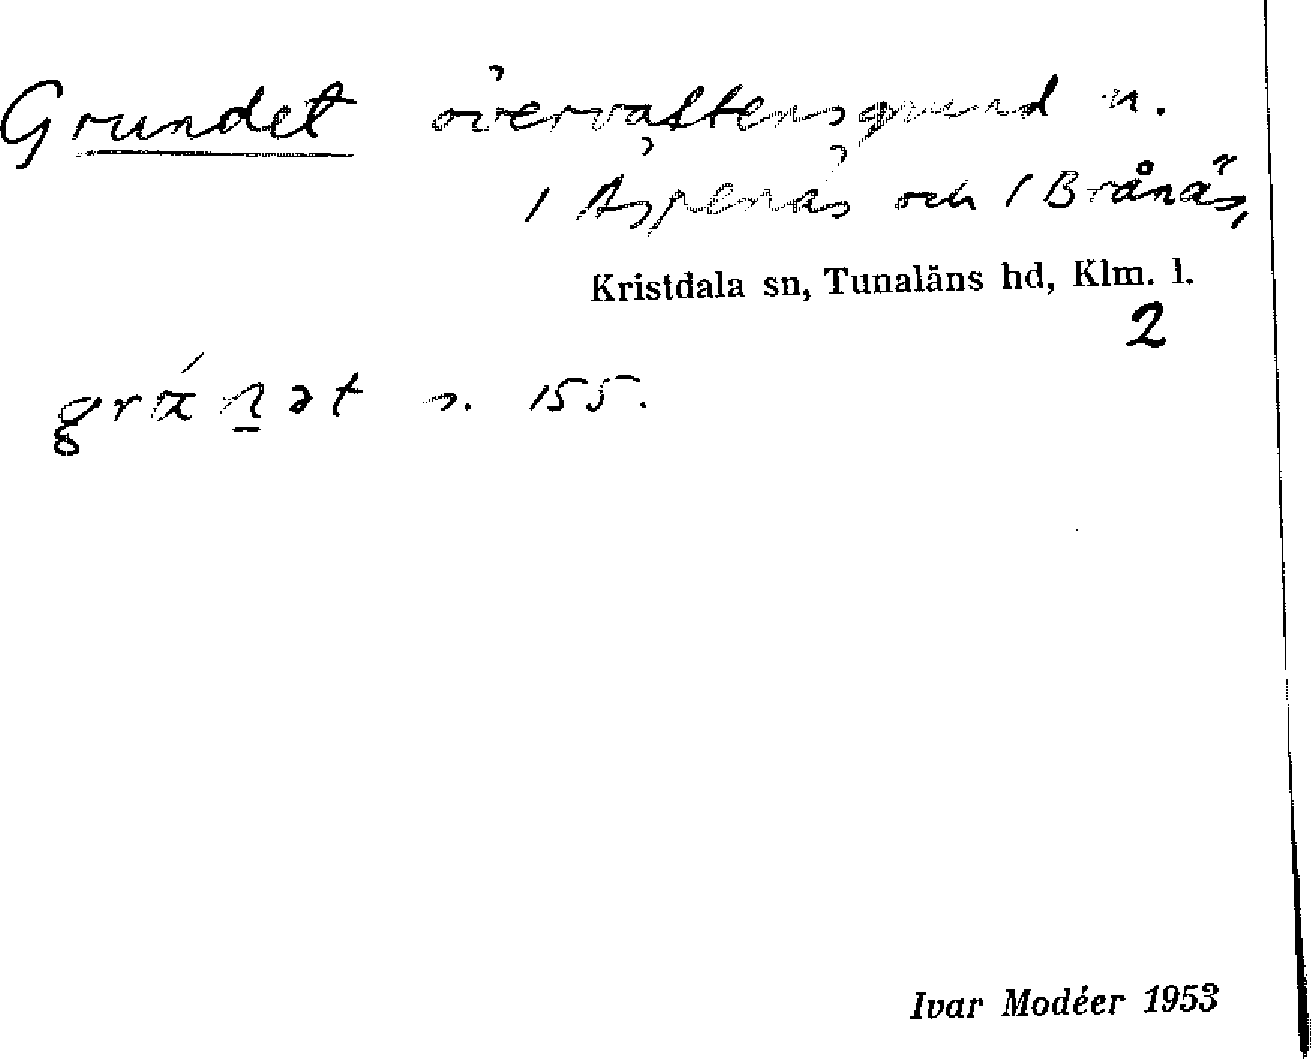 Grundet övervattensgrund n.
1 Äspenäs och 1 Brånäs,
Kristdala sn, Tunaläns hd, Klm. l.
2
s. 155.
Ivar Modéer 1953